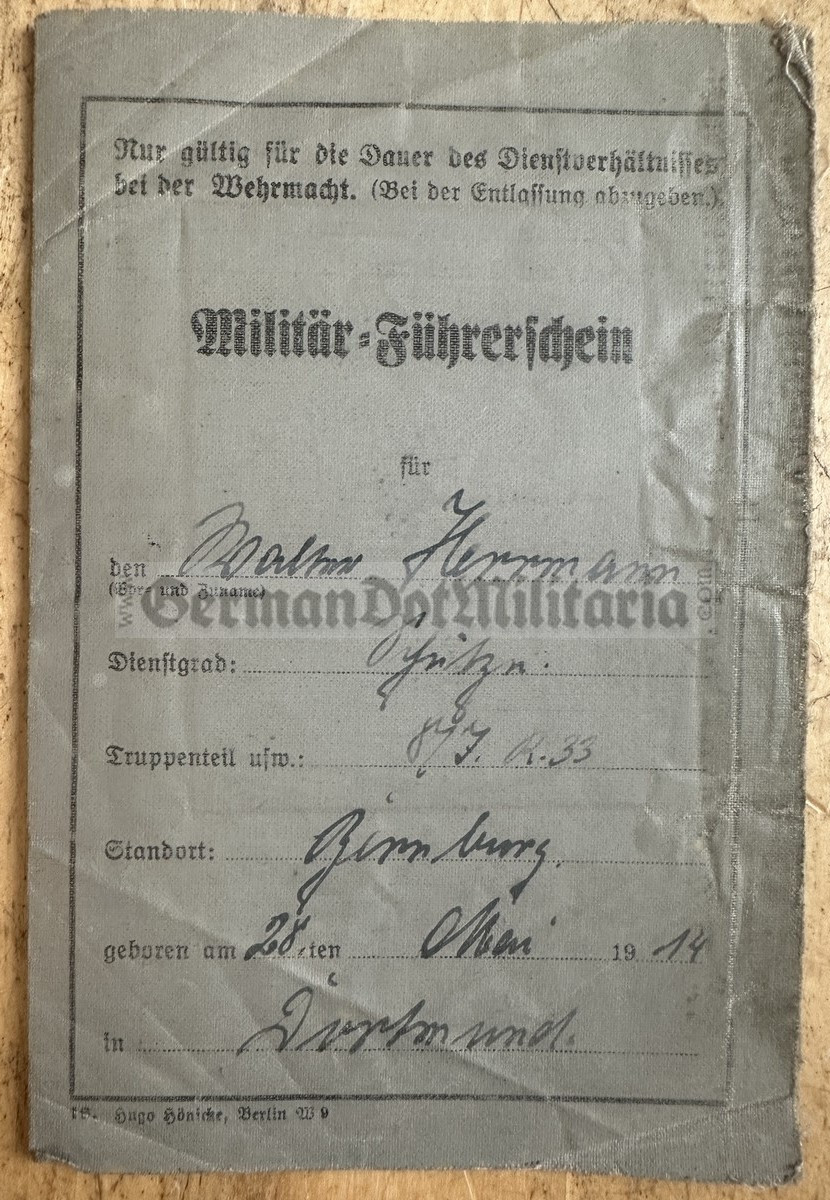 Nur gültig für die Dauer des Dienstverhältnisses
bei der Wehrmacht. (Bei der Entlassung abzugeben.)
Militär-Führerschein
für
den Walter Herrmann
(Vor- und Zuname)
www.GermanDotMilitaria.com
Dienstgrad: Schütze.
Truppenteil usw.: 8/J. R. 33
Standort: Bernburg.
geboren am 28. ten Mai 1914
in Dortmund.
Hugo Hönicke, Berlin W 9